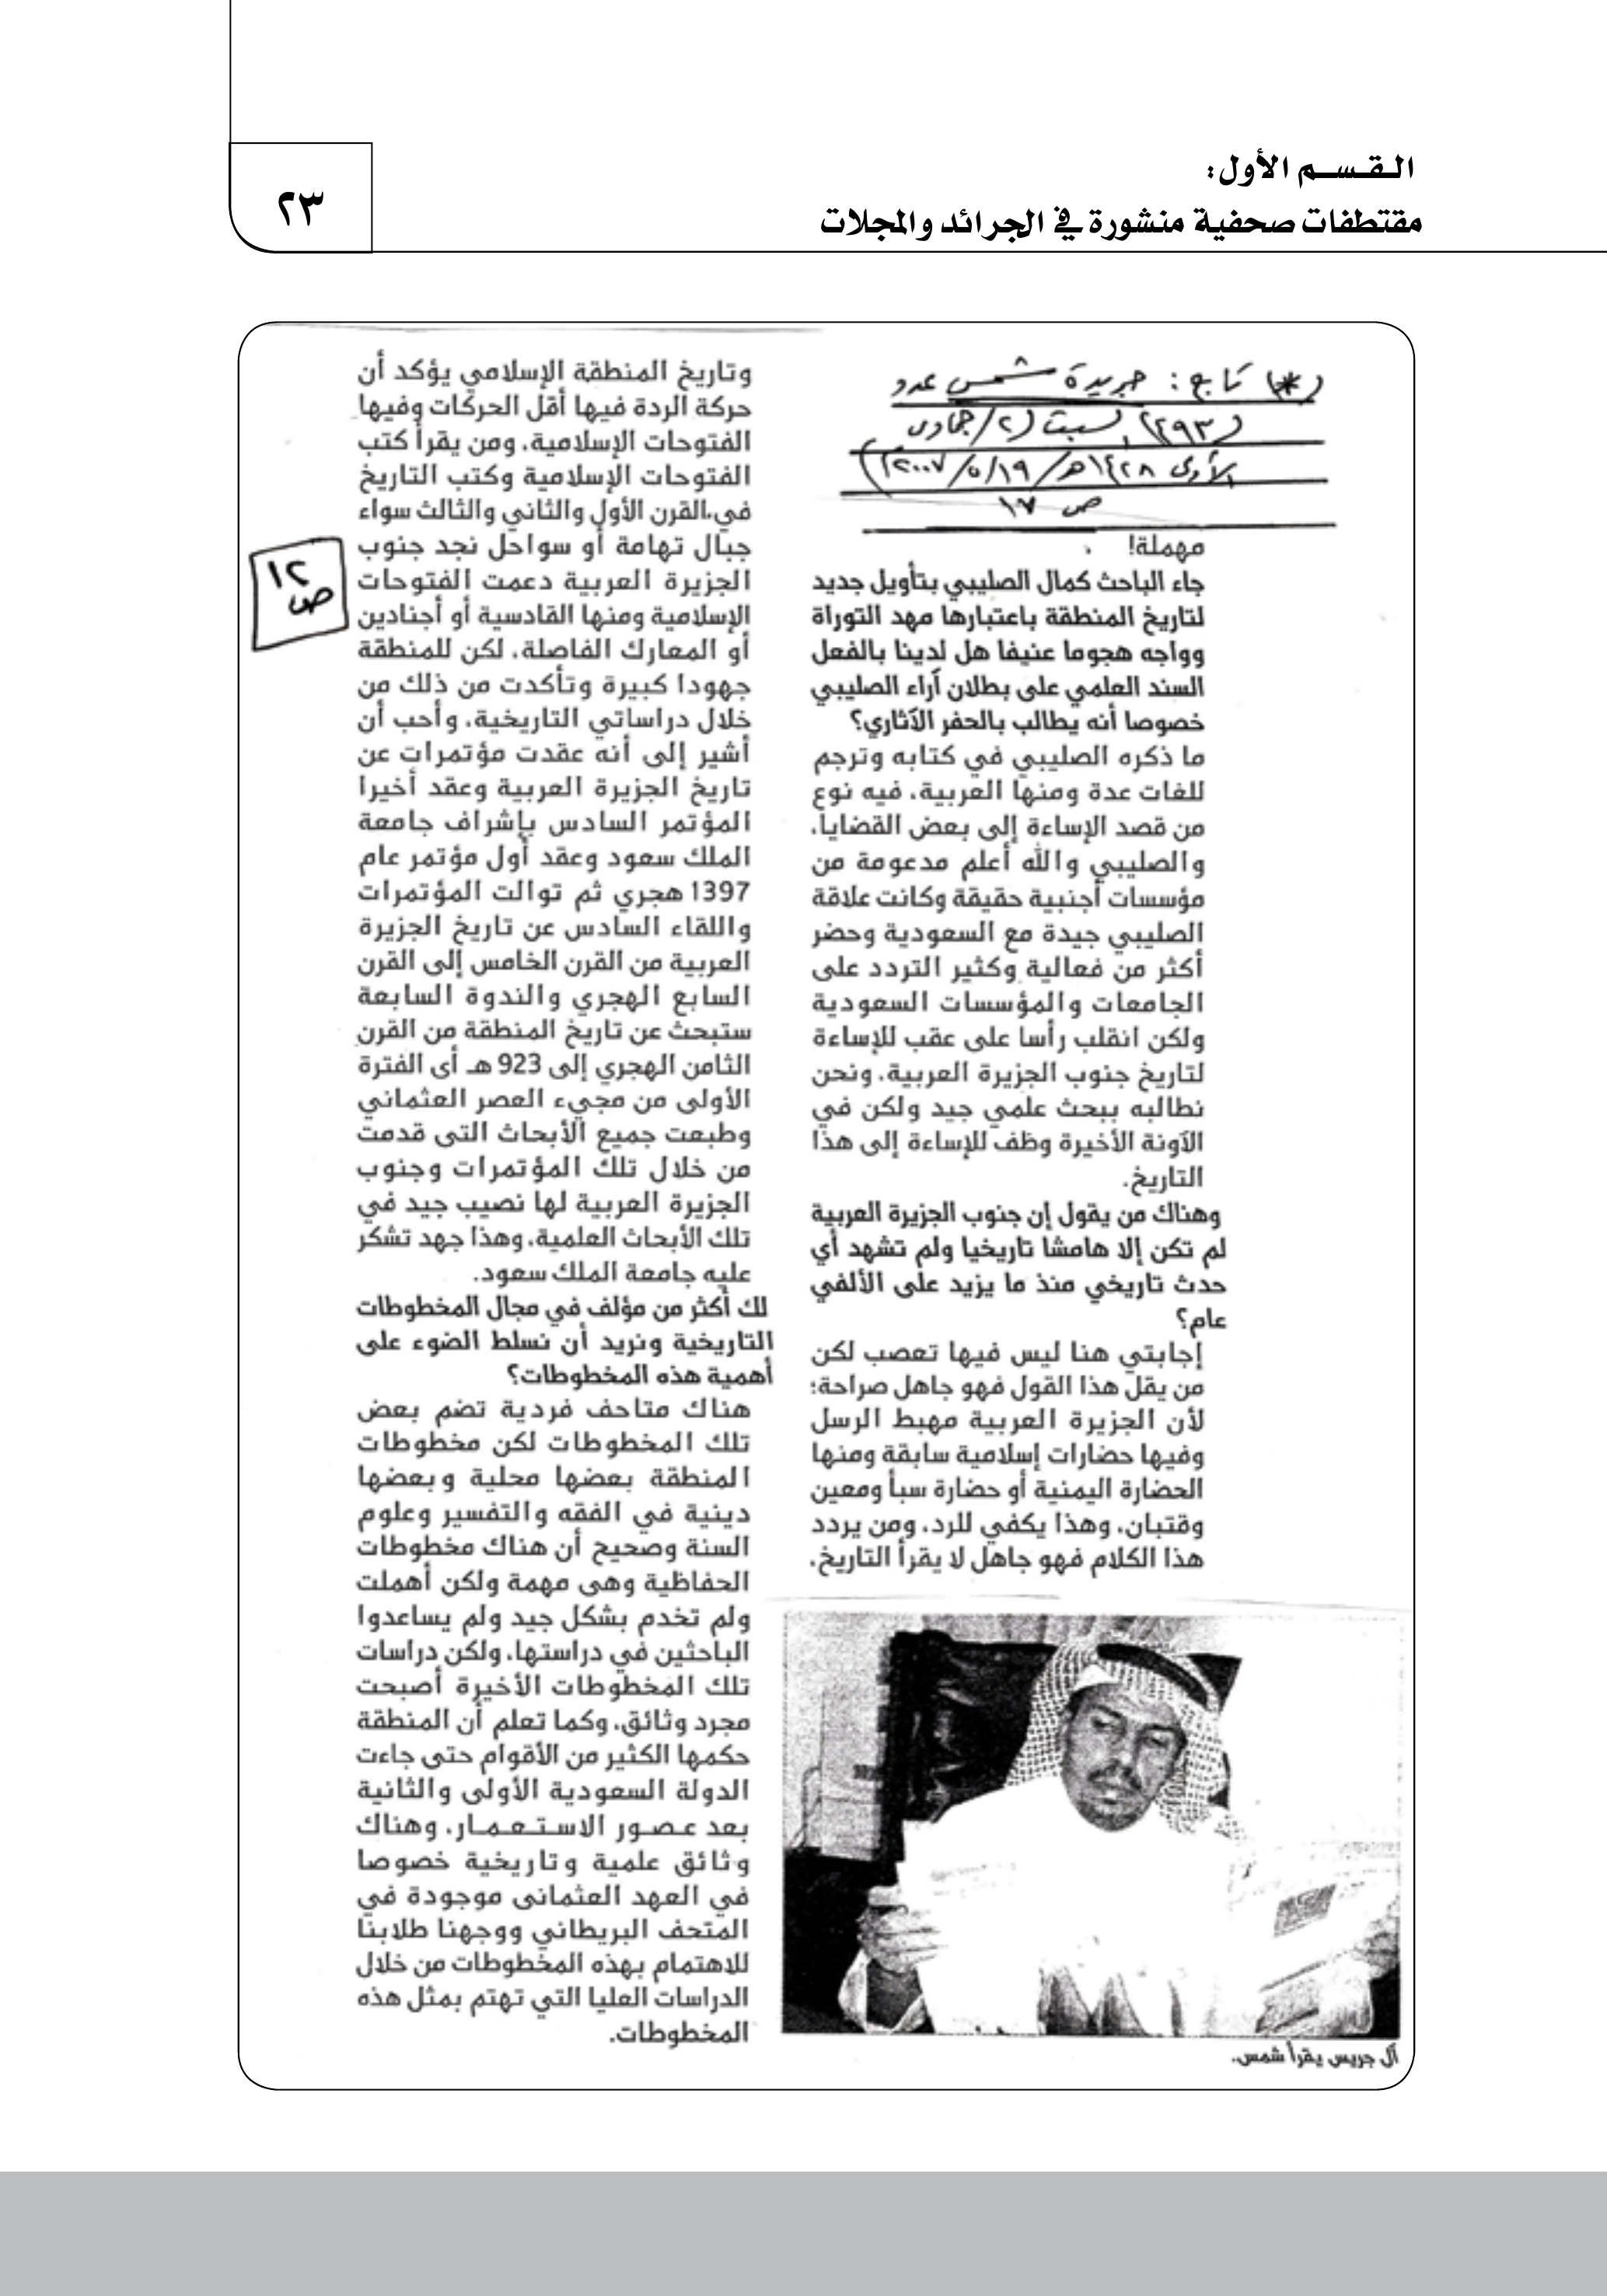 القسم الأول:
مقتطفات صحفية منشورة في الجرائد والمجلات
٢٣
(*) تابع: جريدة شمس عدد
(٤٩٣)، السبت (٢/جمادى
الأولى ١٤٢٨هـ/ ١٩/٥/٢٠٠٧م)
ص ١٧
مهملة!
جاء الباحث كمال الصليبي بتأويل جديد
لتاريخ المنطقة باعتبارها مهد التوراة
وواجه هجوما عنيفا هل لدينا بالفعل
السند العلمي على بطلان آراء الصليبي
خصوصا أنه يطالب بالحفر الآثاري؟
ما ذكره الصليبي في كتابه وترجم
للغات عدة ومنها العربية، فيه نوع
من قصد الإساءة إلى بعض القضايا،
والصليبي والله أعلم مدعومة من
مؤسسات أجنبية حقيقة وكانت علاقة
الصليبي جيدة مع السعودية وحضر
أكثر من فعالية وكثير التردد على
الجامعات والمؤسسات السعودية
ولكن انقلب رأسا على عقب للإساءة
لتاريخ جنوب الجزيرة العربية، ونحن
نطالبه ببحث علمي جيد ولكن في
الآونة الأخيرة وظف للإساءة إلى هذا
التاريخ.
وهناك من يقول إن جنوب الجزيرة العربية
لم تكن إلا هامشا تاريخيا ولم تشهد أي
حدث تاريخي منذ ما يزيد على الألفي
عام؟
إجابتي هنا ليس فيها تعصب لكن
من يقل هذا القول فهو جاهل صراحة؛
لأن الجزيرة العربية مهبط الرسل
وفيها حضارات إسلامية سابقة ومنها
الحضارة اليمنية أو حضارة سبأ ومعين
وقتبان، وهذا يكفي للرد، ومن يردد
هذا الكلام فهو جاهل لا يقرأ التاريخ،
آل جريس يقرأ شمس.
وتاريخ المنطقة الإسلامي يؤكد أن
حركة الردة فيها أقل الحركات وفيها
الفتوحات الإسلامية، ومن يقرأ كتب
الفتوحات الإسلامية وكتب التاريخ
في القرن الأول والثاني والثالث سواء
جبال تهامة أو سواحل نجد جنوب
الجزيرة العربية دعمت الفتوحات
الإسلامية ومنها القادسية أو أجنادين
أو المعارك الفاصلة، لكن للمنطقة
جهودا كبيرة وتأكدت من ذلك من
خلال دراساتي التاريخية، وأحب أن
أشير إلى أنه عقدت مؤتمرات عن
تاريخ الجزيرة العربية وعقد أخيرا
المؤتمر السادس بإشراف جامعة
الملك سعود وعقد أول مؤتمر عام
1397 هجري ثم توالت المؤتمرات
واللقاء السادس عن تاريخ الجزيرة
العربية من القرن الخامس إلى القرن
السابع الهجري والندوة السابعة
ستبحث عن تاريخ المنطقة من القرن
الثامن الهجري إلى 923 هـ أى الفترة
الأولى من مجيء العصر العثماني
وطبعت جميع الأبحاث التى قدمت
من خلال تلك المؤتمرات وجنوب
الجزيرة العربية لها نصيب جيد في
تلك الأبحاث العلمية، وهذا جهد تشكر
عليه جامعة الملك سعود.
لك أكثر من مؤلف في مجال المخطوطات
التاريخية ونريد أن نسلط الضوء على
أهمية هذه المخطوطات؟
هناك متاحف فردية تضم بعض
تلك المخطوطات لكن مخطوطات
المنطقة بعضها محلية وبعضها
دينية في الفقه والتفسير وعلوم
السنة وصحيح أن هناك مخطوطات
الحفاظية وهى مهمة ولكن أهملت
ولم تخدم بشكل جيد ولم يساعدوا
الباحثين في دراستها، ولكن دراسات
تلك المخطوطات الأخيرة أصبحت
مجرد وثائق، وكما تعلم أن المنطقة
حكمها الكثير من الأقوام حتى جاءت
الدولة السعودية الأولى والثانية
بعد عصور الاستعمار، وهناك
وثائق علمية وتاريخية خصوصا
في العهد العثمانى موجودة في
المتحف البريطاني ووجهنا طلابنا
للاهتمام بهذه المخطوطات من خلال
الدراسات العليا التي تهتم بمثل هذه
المخطوطات.
١٢
ص